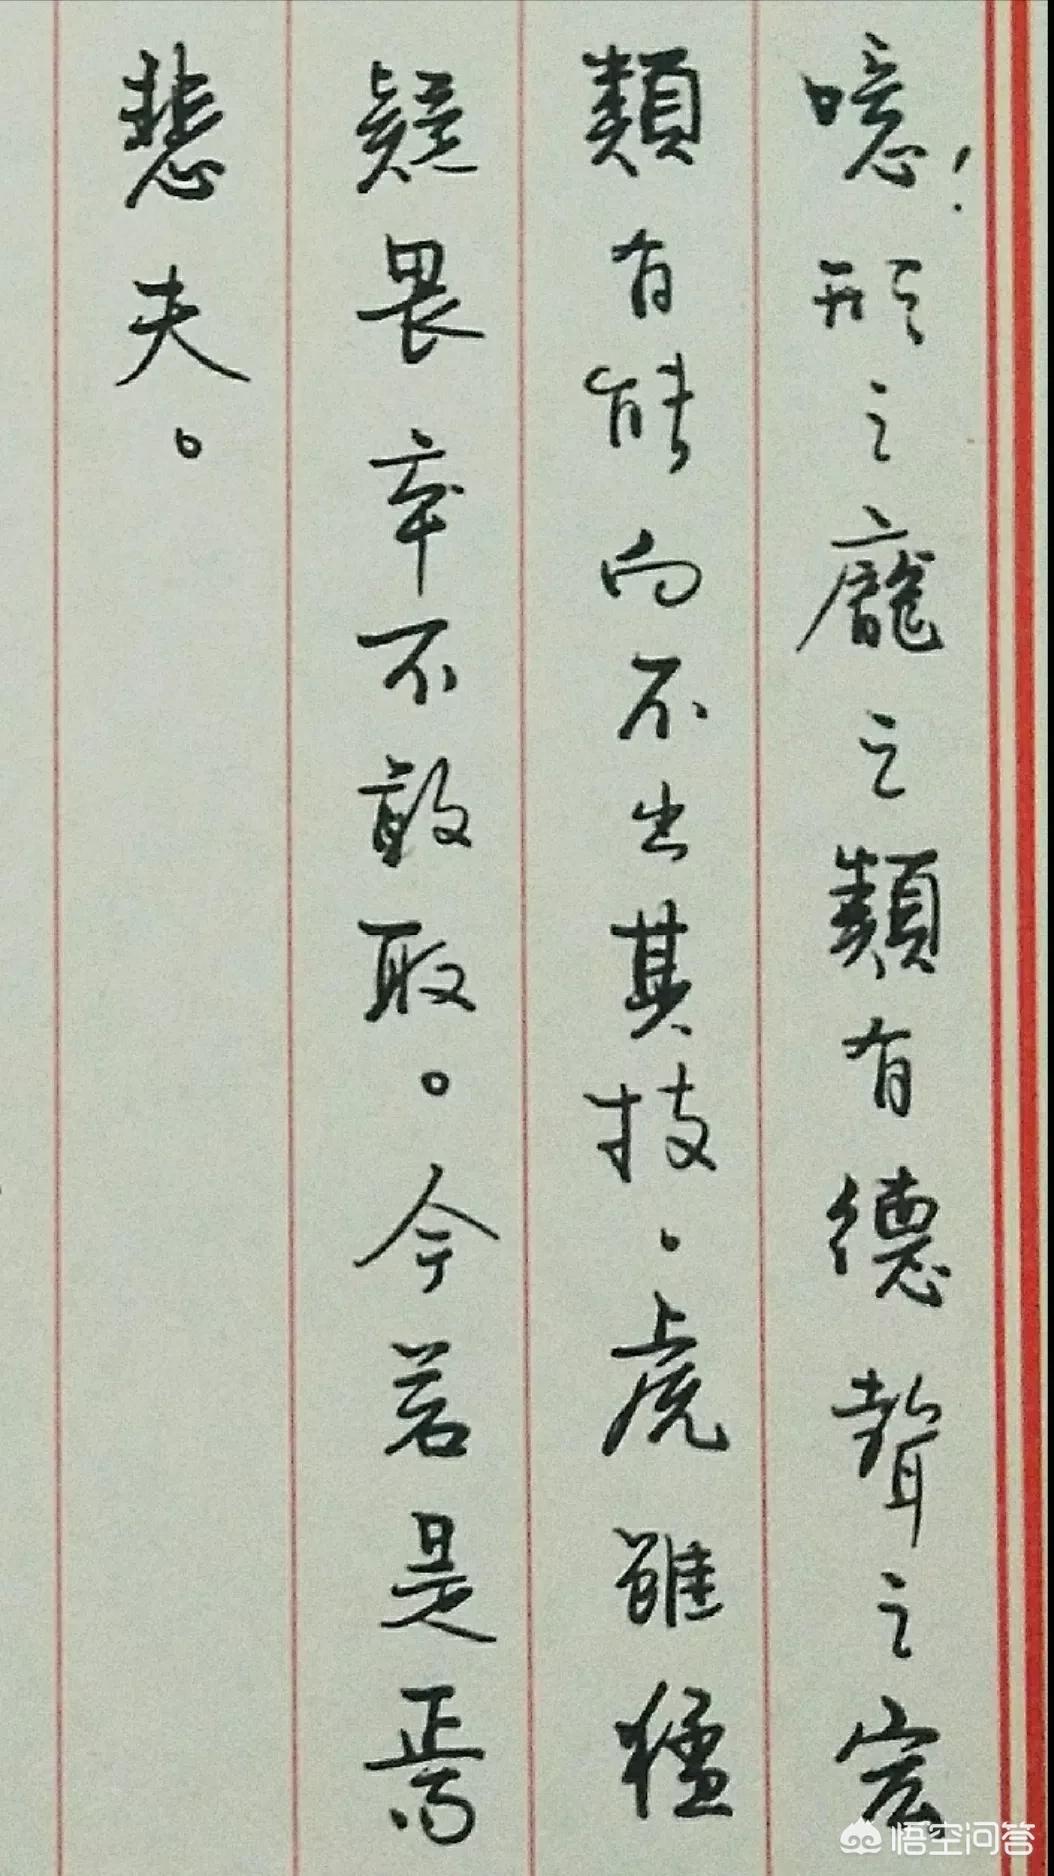 噫！形之龐之類有德聲之宏
類有能向不出其技.虎雖猛
疑畏卒不敢取。今若是焉
悲夫。
悟空问答